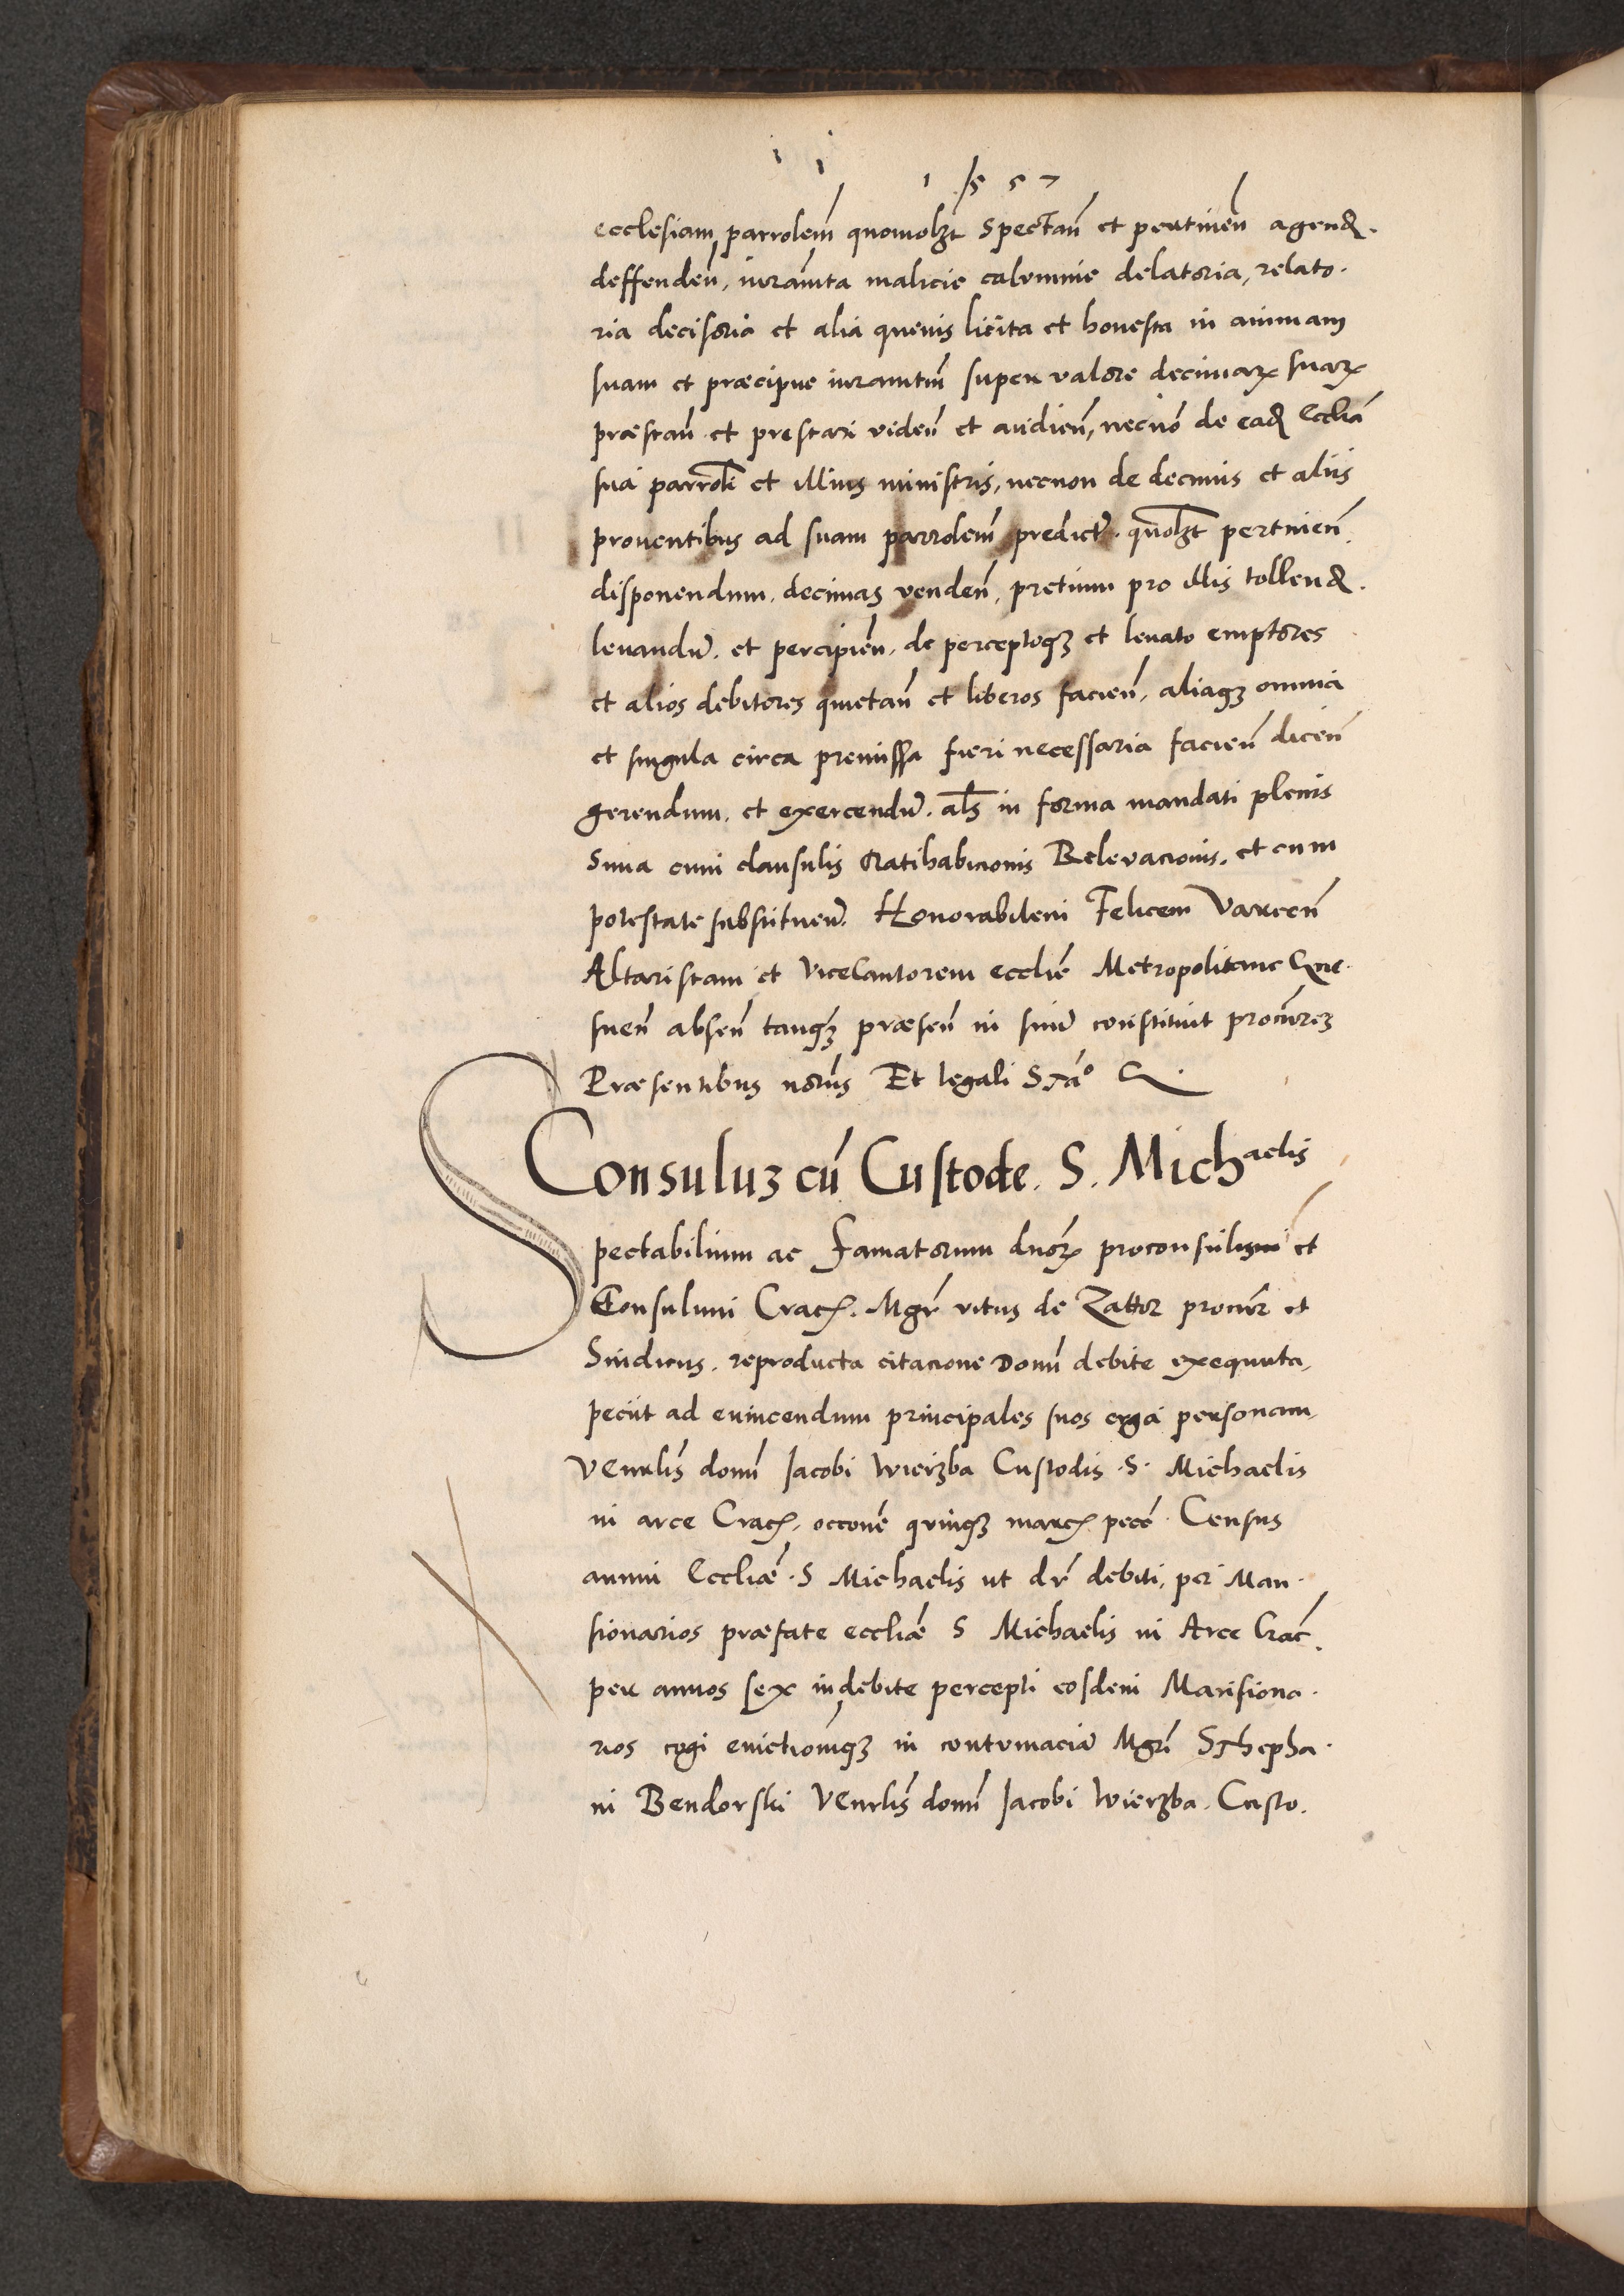 1557
ecclesiam parrolem̄ quomolꝫt spectañ et pertineñ agenđ.
deffendeñ, iuram̄ta malicie calumnie delatoria, relato.
ria decisoria et alia quevis licita et honesta in animam
suam et præcipue iuramtm̄ super valore decimaꝝ suaꝝ
præstañ et prestari videñ et audieñ, necnō de eađ Ecclīa
sua parroli et illius ministris, necnon de decimis et aliis
proventibus ad suam parrolem̄ predictā. quolꝫt pertineñ.
disponendum, decimas vendeñ, pretium pro illis tollenđ.
levandū. et percipieñ, de perceptoqꝫ et levato emptores
et alios debitores quietañ et liberos facieñ, aliaqꝫ omnia
et singula circa premissa fieri necessaria facieñ diceñ
gerendum, et exercendū. als̄ in forma mandati plenis
sima cum clausulis Ratihabicionis Relevacionis, et cum
potestate substituenđ. Honorabilem Felicem Varceñ
Altaristam et ViceCantorem eccliē Metropolitane Gne.
sneñ abseñ tanqꝫ præseñ in sinū constituit procūreꝫ
Præsentibus notīis Et legali S
Consuluꝫ cū Custode. S. Michaelis
Spectabilium ac Famatorum dnōꝝ proconsulis et
Consulum Crac. Mgr̄ vitus de Zattor procūr et
Sindicus. reproducta citacione Domī debite exequuta,
peciit ad evincendum principales suos erga personam,
Venrlis̄ domī Jacobi Wierzba Custodis S. Michaelis
in arce Crac. occonē quinqꝫ marc. pecc̄ Census
annui Eccliæ S Michaelis ut dr̄ debiti, per Man.
sionarios præfate eccliæ S Michaelis in Arce Crac̄.
per annos sex indebite percepti eosdem Mansiona.
rios cogi evictionīqꝫ in contumaciā Mgrī Sthepha.
ni Bendorski Venrlis̄ domī Jacobi Wierzba. Custo.